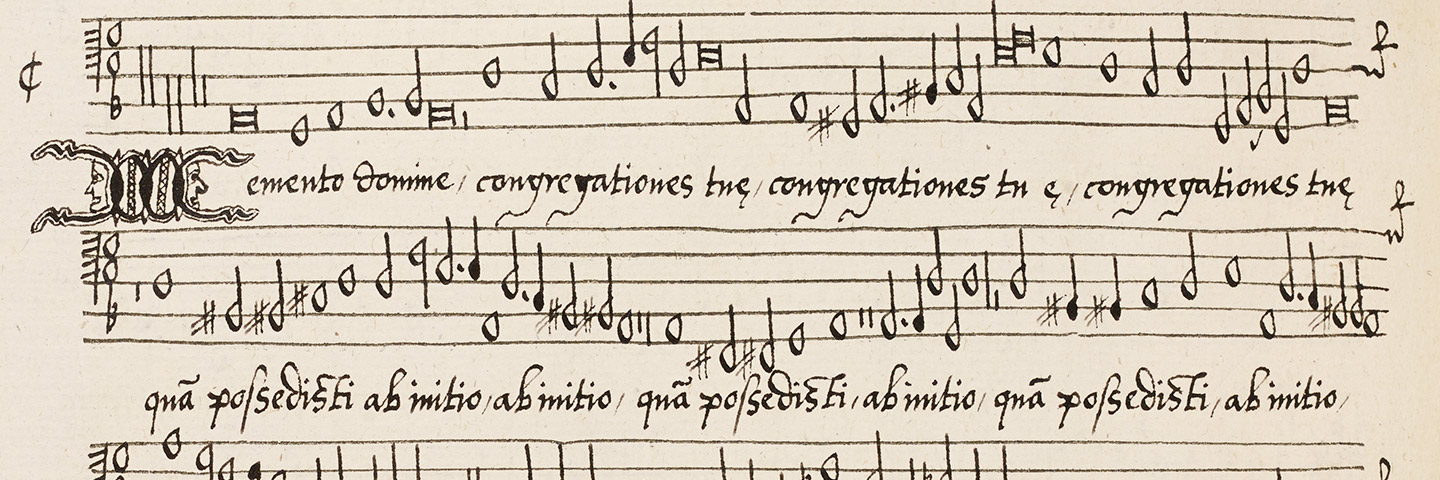 Memento domine / congregationes tuę / congregationes tu ę / congregationes tuę
quā possedisti ab initio / ab initio / quā possedisti / ab initio / quā possedisti / ab initio /